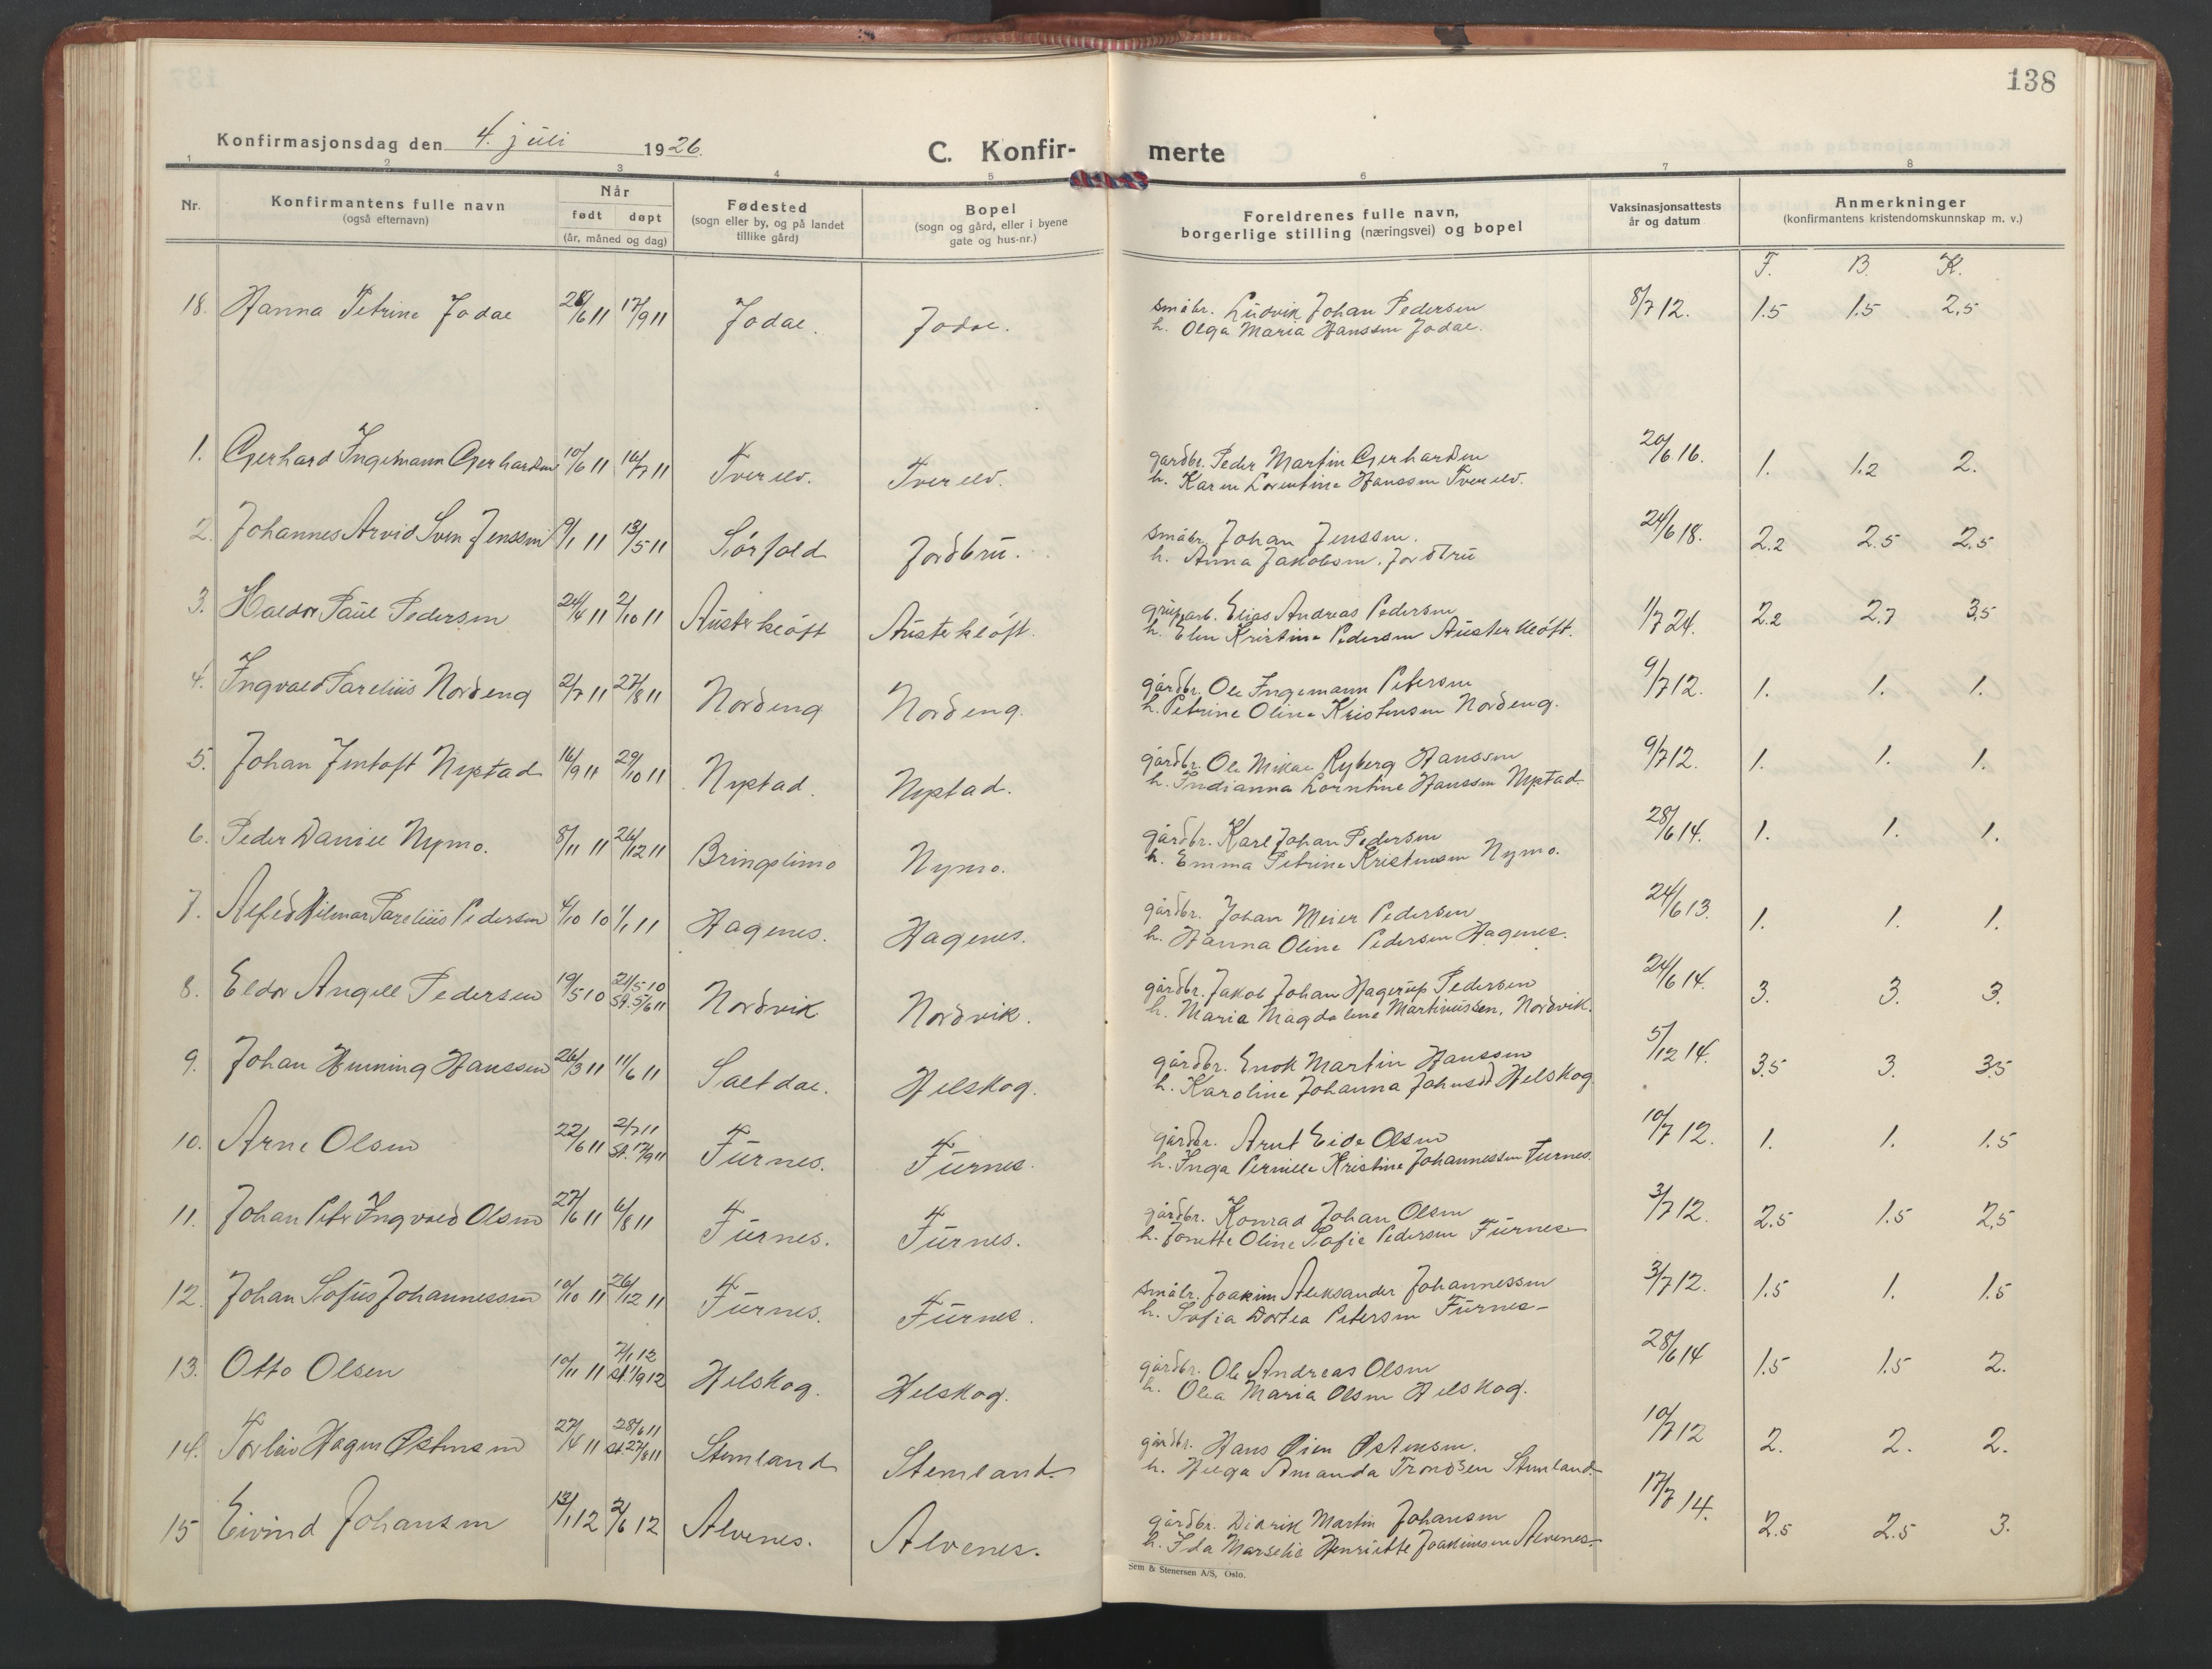 138
Konfirmasjonsdag den 4. juli 1926.
C. Konfir- merte
1 2 3 4 5 6 7 8
Nr.
Konfirmantens fulle navn
(også efternavn)
Når
født døpt
(år, måned og dag)
Fødested
(sogn eller by, og på landet
tillike gård)
Bopel
(sogn og gård, eller i byene
gate og hus-nr.)
Foreldrenes fulle navn,
borgerlige stilling (næringsvei) og bopel
Vaksinasjonsattests
år og datum
Anmerkninger
(konfirmantens kristendomskunnskap m. v.)
F. B. K.
18. Hanna Petrine Jodal 28/6 11 17/9 11 Jodal. Jodal. småbr. Ludvik Johan Pedersen 8/7 12. 1.5 1.5 2,5
h. Olga Maria Hanssen Jodal.
1. Gerhard Ingemann Gerhardsen 10/6 11 16/7 11 Tverelv. Tverelv. gårdbr. Peder Martin Gerhardsen 20/6 16. 1. 1.2 2.
h. Karen Lorentine Hanssen Tverelv.
2. Johannes Arvid Sven Jenssen 9/1 11 13/5 11 Sörfold Jordbru. småbr. Johan Jenssen. 24/6 18. 2.2 2.5 2.5
h. Anna Jakobsen. Jordbru
3. Haldor Paul Pedersen 24/4 11 2/10 11 Austerklöft Austerklöft. grubarb. Elias Andreas Pedersen 1/7 24. 2.2 2.7 3,5
h. Elen Kristine Pedersen Austerklöft.
4. Ingvald Parelius Nordeng 2/7 11 27/8 11 Nordeng Nordeng. gårdbr. Ole Ingemann Petersen 9/7 12. 1. 1. 1.
h. Petrine Oline Kristensen Nordeng.
5. Johan Jentoft Nystad 16/9 11 29/10 11 Nystad. Nystad. gårdbr. Ole Mikal Ryberg Hanssen 9/7 12. 1. 1. 1.
h. Indianna Lorntine Hanssen Nystad.
6. Peder Daniel Nymo. 8/11 11 26/12 11 Bringslimo Nymo. gårdbr. Karl Johan Pedersen 28/6 14. 1. 1. 1.
h. Emma Petrine Kristensen Nymo.
7. Alfred Hilmar Parelius Pedersen 4/10 10 1/1 11 Hagenes. Hagenes. gårdbr. Johan Meier Pedersen 24/6 13. 1. 1. 1.
h. Hanna Oline Pedersen Hagenes.
8. Eldor Angell Pedersen 19/5 10 21/5 10 Nordvik Nordvik. gårdbr. Jakob Johan Hagerup Pedersen 24/6 14. 3. 3. 3.
St. 5/6 11 h. Maria Magdalene Martinussen, Nordvik.
9. Johan Henning Hanssen 26/3 11 11/6 11 Saltdal. Helskog. gårdbr. Enok Martin Hanssen 5/12 14. 3.5 3. 3.5
h. Karoline Johanna Johnsd Helskog
10. Arne Olsen 22/6 11 2/7 11 Furnes. Furnes. gårdbr. Arnt Eide Olsen 10/7 12. 1. 1. 1.5
St. 17/9 11 h. Inga Pernille Kristine Johannessen Furnes.
11. Johan Peter Ingvald Olsen 27/6 11 6/8 11 Furnes. Furnes. gårdbr. Konrad Johan Olsen 3/7 12. 2.5 1.5 2,5
h. Jonette Oline Sofie Pedersen Furnes
12. Johan Sofus Johannessen 10/10 11 26/12 11 Furnes. Furnes. småbr. Joakim Aleksander Johannessen 3/7 12. 1.5 1. 1.5
h. Sofia Dortea Petersen Furnes-
13. Otto Olsen 10/11 11 7/1 12 Helskog. Helskog. gårdbr. Ole Andreas Olsen 28/6 14 1.5 1.5 2.
St. 1/9 12 h. Olea Maria Olsen Helskog.
14. Torleiv Hagen Østensen 27/4 11 28/6 11 Stemland Stemland. gårdbr. Hans Øien Østensen. 10/7 12 2. 2. 2.
St. 27/8 11 h. Helga Amanda Trondsen Stemland.
15 Eivind Johansen 13/1 12 2/6 12 Alvenes. Alvenes. gårdbr. Didrik Martin Johansen 17/7 14. 2.5 2.5 3.
h. Ida Marselie Henriette Joakimsen Alvenes.
Sem & Stenersen A/S, Oslo.